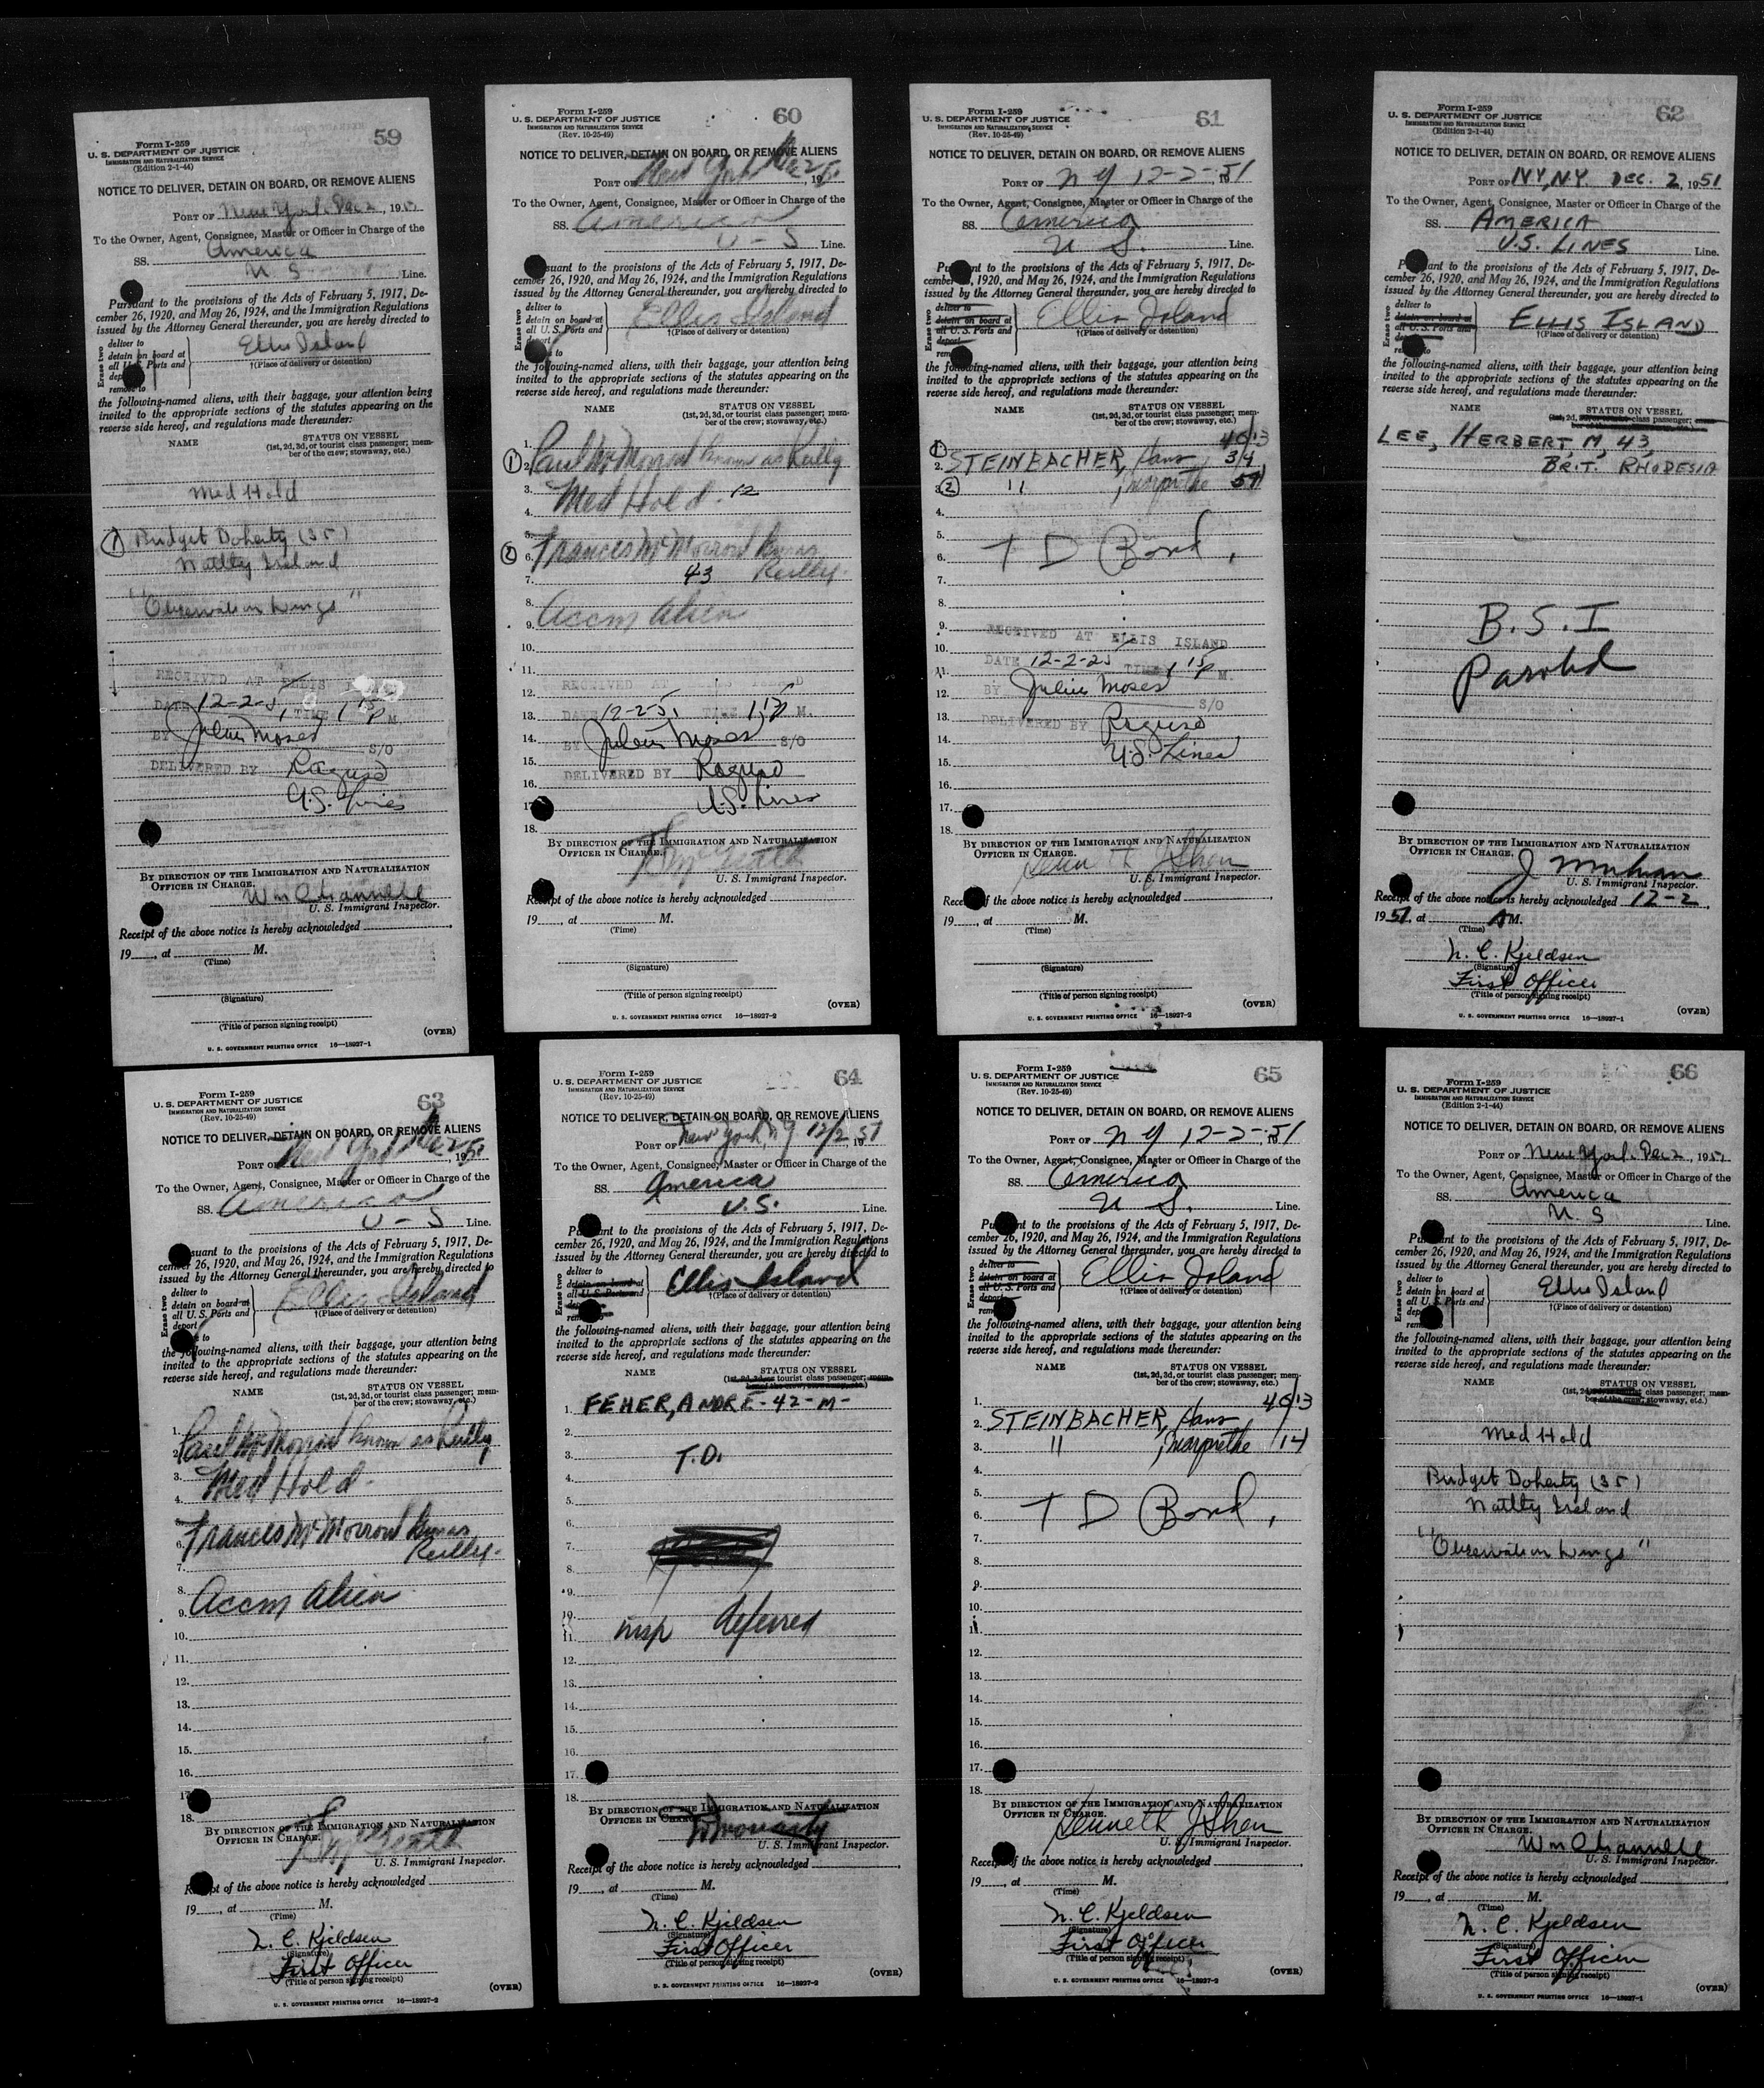 59
Form I-259
U. S. DEPARTMENT OF JUSTICE
IMMIGRATION AND NATURALIZATION SERVICE
(Edition 2-1-44)
NOTICE TO DELIVER, DETAIN ON BOARD, OR REMOVE ALIENS
PORT OF New York Dec 2, 1951
To the Owner, Agent, Consignee, Master or Officer in Charge of the
SS. America
U S Line.
Pursuant to the provisions of the Acts of February 5, 1917, De-
cember 26, 1920, and May 26, 1924, and the Immigration Regulations
issued by the Attorney General thereunder, you are hereby directed to
Erase two
deliver to
detain on board at
all U.S. Ports and
deport
remove to
Ellis Island
†(Place of delivery or detention)
the following-named aliens, with their baggage, your attention being
invited to the appropriate sections of the statutes appearing on the
reverse side hereof, and regulations made thereunder:
NAME STATUS ON VESSEL
(1st, 2d, 3d, or tourist class passenger; mem-
ber of the crew; stowaway, etc.)
Med Hold
(1) Bridget Doherty (35)
Natlty Ireland
"Observation Lungs"
RECEIVED AT ELLIS ISLAND
DATE 12-2-51 TIME 1 15 P M
BY Julius Moses S/O
DELIVERED BY Raguso
U.S. Lines
BY DIRECTION OF THE IMMIGRATION AND NATURALIZATION
OFFICER IN CHARGE.
Wm Channell
U. S. Immigrant Inspector.
Receipt of the above notice is hereby acknowledged
19____, at ____ M.
(Time)
(Signature)
(Title of person signing receipt)
(OVER)
U. S. GOVERNMENT PRINTING OFFICE 16—18927-1
60
Form I-259
U. S. DEPARTMENT OF JUSTICE
IMMIGRATION AND NATURALIZATION SERVICE
(Rev. 10-25-49)
NOTICE TO DELIVER, DETAIN ON BOARD, OR REMOVE ALIENS
PORT OF New York Dec 2, 1951
To the Owner, Agent, Consignee, Master or Officer in Charge of the
SS. America
U - S Line.
suant to the provisions of the Acts of February 5, 1917, De-
cember 26, 1920, and May 26, 1924, and the Immigration Regulations
issued by the Attorney General thereunder, you are hereby directed to
Erase two
deliver to
detain on board at
all U. S. Ports and
deport
to
Ellis Island
†(Place of delivery or detention)
the following-named aliens, with their baggage, your attention being
invited to the appropriate sections of the statutes appearing on the
reverse side hereof, and regulations made thereunder:
NAME STATUS ON VESSEL
(1st, 2d, 3d, or tourist class passenger; mem-
ber of the crew; stowaway, etc.)
1.
(1) 2. Paul McMorrow known as Reilly
3. Med Hold - 12
4.
5.
(2) 6. Frances McMorrow known as
7. 43 Reilly -
8.
9. Accm Alien
10.
11.
12. RECEIVED AT ELLIS ISLAND
13. DATE 12-2-51 TIME 1 15 P M.
14. BY Julius Moses S/O
15.
16. DELIVERED BY Raguso
17. U.S. Lines
18.
BY DIRECTION OF THE IMMIGRATION AND NATURALIZATION
OFFICER IN CHARGE.
U. S. Immigrant Inspector.
Receipt of the above notice is hereby acknowledged
19____, at ____ M.
(Time)
(Signature)
(Title of person signing receipt)
(OVER)
U. S. GOVERNMENT PRINTING OFFICE 16—18927-2
61
Form I-259
U. S. DEPARTMENT OF JUSTICE
IMMIGRATION AND NATURALIZATION SERVICE
(Rev. 10-25-49)
NOTICE TO DELIVER, DETAIN ON BOARD, OR REMOVE ALIENS
PORT OF N Y 12-2-51
To the Owner, Agent, Consignee, Master or Officer in Charge of the
SS. America
U S. Line.
Pu nt to the provisions of the Acts of February 5, 1917, De-
cember 26, 1920, and May 26, 1924, and the Immigration Regulations
issued by the Attorney General thereunder, you are hereby directed to
Erase two
deliver to
detain on board at
all U. S. Ports and
deport
rem
Ellis Island
†(Place of delivery or detention)
the following-named aliens, with their baggage, your attention being
invited to the appropriate sections of the statutes appearing on the
reverse side hereof, and regulations made thereunder:
NAME STATUS ON VESSEL
(1st, 2d, 3d, or tourist class passenger; mem-
ber of the crew; stowaway, etc.)
(1) 40/13
2. STEINBACHER, Hans 3/4
(2) " , Margrethe 57
4.
5.
6. T D Bond,
7.
8.
9.
RECEIVED AT ELLIS ISLAND
10.
DATE 12-2-25 TIME 1 15 P M.
11.
12. BY Julius Moses S/O
13.
14. DELIVERED BY Raguso
15. U.S. Lines
16.
17.
18.
BY DIRECTION OF THE IMMIGRATION AND NATURALIZATION
OFFICER IN CHARGE.
Kenneth J Shea
U. S. Immigrant Inspector.
Receipt of the above notice is hereby acknowledged
19____, at ____ M.
(Time)
(Signature)
(Title of person signing receipt)
(OVER)
U. S. GOVERNMENT PRINTING OFFICE 16—18927-2
62
Form I-259
U. S. DEPARTMENT OF JUSTICE
IMMIGRATION AND NATURALIZATION SERVICE
(Edition 2-1-44)
NOTICE TO DELIVER, DETAIN ON BOARD, OR REMOVE ALIENS
PORT OF NY, NY. DEC. 2, 1951
To the Owner, Agent, Consignee, Master or Officer in Charge of the
SS. AMERICA
U.S. LINES Line.
Pu ant to the provisions of the Acts of February 5, 1917, De-
cember 26, 1920, and May 26, 1924, and the Immigration Regulations
issued by the Attorney General thereunder, you are hereby directed to
Erase two
deliver to
detain on board at
all U. S. Ports and
deport
re to
ELLIS ISLAND
†(Place of delivery or detention)
the following-named aliens, with their baggage, your attention being
invited to the appropriate sections of the statutes appearing on the
reverse side hereof, and regulations made thereunder:
NAME STATUS ON VESSEL
(1st, 2d, 3d, or tourist class passenger; mem-
ber of the crew; stowaway, etc.)
LEE, HERBERT, M, 43,
BRIT. RHODESIA
B.S.I
Paroled
BY DIRECTION OF THE IMMIGRATION AND NATURALIZATION
OFFICER IN CHARGE.
U. S. Immigrant Inspector.
Receipt of the above notice is hereby acknowledged 12-2,
1951, at A M.
(Time)
N. C. Kjeldsen
(Signature)
First Officer
(Title of person signing receipt)
(OVER)
U. S. GOVERNMENT PRINTING OFFICE 16—18927-1
63
Form I-259
U. S. DEPARTMENT OF JUSTICE
IMMIGRATION AND NATURALIZATION SERVICE
(Rev. 10-25-49)
NOTICE TO DELIVER, DETAIN ON BOARD, OR REMOVE ALIENS
PORT OF New York Dec 2, 1951
To the Owner, Agent, Consignee, Master or Officer in Charge of the
SS. America
U - S Line.
suant to the provisions of the Acts of February 5, 1917, De-
cember 26, 1920, and May 26, 1924, and the Immigration Regulations
issued by the Attorney General thereunder, you are hereby directed to
Erase two
deliver to
detain on board at
all U. S. Ports and
deport
to
Ellis Island
†(Place of delivery or detention)
the following-named aliens, with their baggage, your attention being
invited to the appropriate sections of the statutes appearing on the
reverse side hereof, and regulations made thereunder:
NAME STATUS ON VESSEL
(1st, 2d, 3d, or tourist class passenger; mem-
ber of the crew; stowaway, etc.)
1.
2. Paul McMorrow known as Reilly
3. Med Hold -
4.
5.
6. Frances McMorrow known as
7. Reilly -
8.
9. Accm Alien
10.
11.
12.
13.
14.
15.
16.
17.
18.
BY DIRECTION OF THE IMMIGRATION AND NATURALIZATION
OFFICER IN CHARGE.
U. S. Immigrant Inspector.
Receipt of the above notice is hereby acknowledged
19____, at ____ M.
(Time)
N. C. Kjeldsen
(Signature)
First Officer
(Title of person signing receipt)
(OVER)
U. S. GOVERNMENT PRINTING OFFICE 16—18927-2
64
Form I-259
U. S. DEPARTMENT OF JUSTICE
IMMIGRATION AND NATURALIZATION SERVICE
(Rev. 10-25-49)
NOTICE TO DELIVER, DETAIN ON BOARD, OR REMOVE ALIENS
PORT OF New York, NY 12/2 1951
To the Owner, Agent, Consignee, Master or Officer in Charge of the
SS. America
U.S. Line.
Pu ant to the provisions of the Acts of February 5, 1917, De-
cember 26, 1920, and May 26, 1924, and the Immigration Regulations
issued by the Attorney General thereunder, you are hereby directed to
Erase two
deliver to
detain on board at
all U. S. Ports and
deport
rem
Ellis Island
†(Place of delivery or detention)
the following-named aliens, with their baggage, your attention being
invited to the appropriate sections of the statutes appearing on the
reverse side hereof, and regulations made thereunder:
NAME STATUS ON VESSEL
(1st, 2d, 3d, or tourist class passenger; mem-
ber of the crew; stowaway, etc.)
1. FEHER, ANDRE - 42 - M -
2.
3. T.D.
4.
5.
6.
7.
8.
9.
10.
11. insp deferred
12.
13.
14.
15.
16.
17.
18.
BY DIRECTION OF THE IMMIGRATION AND NATURALIZATION
OFFICER IN CHARGE.
U. S. Immigrant Inspector.
Receipt of the above notice is hereby acknowledged
19____, at ____ M.
(Time)
N. C. Kjeldsen
(Signature)
First Officer
(Title of person signing receipt)
(OVER)
U. S. GOVERNMENT PRINTING OFFICE 16—18927-2
65
Form I-259
U. S. DEPARTMENT OF JUSTICE
IMMIGRATION AND NATURALIZATION SERVICE
(Rev. 10-25-49)
NOTICE TO DELIVER, DETAIN ON BOARD, OR REMOVE ALIENS
PORT OF N Y 12-2-51
To the Owner, Agent, Consignee, Master or Officer in Charge of the
SS. America
U S. Line.
Pu nt to the provisions of the Acts of February 5, 1917, De-
cember 26, 1920, and May 26, 1924, and the Immigration Regulations
issued by the Attorney General thereunder, you are hereby directed to
Erase two
deliver to
detain on board at
all U. S. Ports and
deport
rem
Ellis Island
†(Place of delivery or detention)
the following-named aliens, with their baggage, your attention being
invited to the appropriate sections of the statutes appearing on the
reverse side hereof, and regulations made thereunder:
NAME STATUS ON VESSEL
(1st, 2d, 3d, or tourist class passenger; mem-
ber of the crew; stowaway, etc.)
1. 40/13
2. STEINBACHER, Hans
3. " , Margrethe /14
4.
5.
6. T D Bond,
7.
8.
9.
10.
11.
12.
13.
14.
15.
16.
17.
18.
BY DIRECTION OF THE IMMIGRATION AND NATURALIZATION
OFFICER IN CHARGE.
Kenneth J Shea
U. S. Immigrant Inspector.
Receipt of the above notice is hereby acknowledged
19____, at ____ M.
(Time)
N. C. Kjeldsen
(Signature)
First Officer
(Title of person signing receipt)
(OVER)
U. S. GOVERNMENT PRINTING OFFICE 16—18927-2
66
Form I-259
U. S. DEPARTMENT OF JUSTICE
IMMIGRATION AND NATURALIZATION SERVICE
(Edition 2-1-44)
NOTICE TO DELIVER, DETAIN ON BOARD, OR REMOVE ALIENS
PORT OF New York Dec 2, 1951
To the Owner, Agent, Consignee, Master or Officer in Charge of the
SS. America
U. S Line.
Pu ant to the provisions of the Acts of February 5, 1917, De-
cember 26, 1920, and May 26, 1924, and the Immigration Regulations
issued by the Attorney General thereunder, you are hereby directed to
Erase two
deliver to
detain on board at
all U. S. Ports and
deport
rem
Ellis Island
†(Place of delivery or detention)
the following-named aliens, with their baggage, your attention being
invited to the appropriate sections of the statutes appearing on the
reverse side hereof, and regulations made thereunder:
NAME STATUS ON VESSEL
(1st, 2d, 3d, or tourist class passenger; mem-
ber of the crew; stowaway, etc.)
Med Hold
Bridget Doherty (35)
Natlty Ireland
"Observation Lungs"
BY DIRECTION OF THE IMMIGRATION AND NATURALIZATION
OFFICER IN CHARGE.
Wm Channell
U. S. Immigrant Inspector.
Receipt of the above notice is hereby acknowledged
19____, at ____ M.
(Time)
N. C. Kjeldsen
(Signature)
First Officer
(Title of person signing receipt)
(OVER)
U. S. GOVERNMENT PRINTING OFFICE 16—18927-1